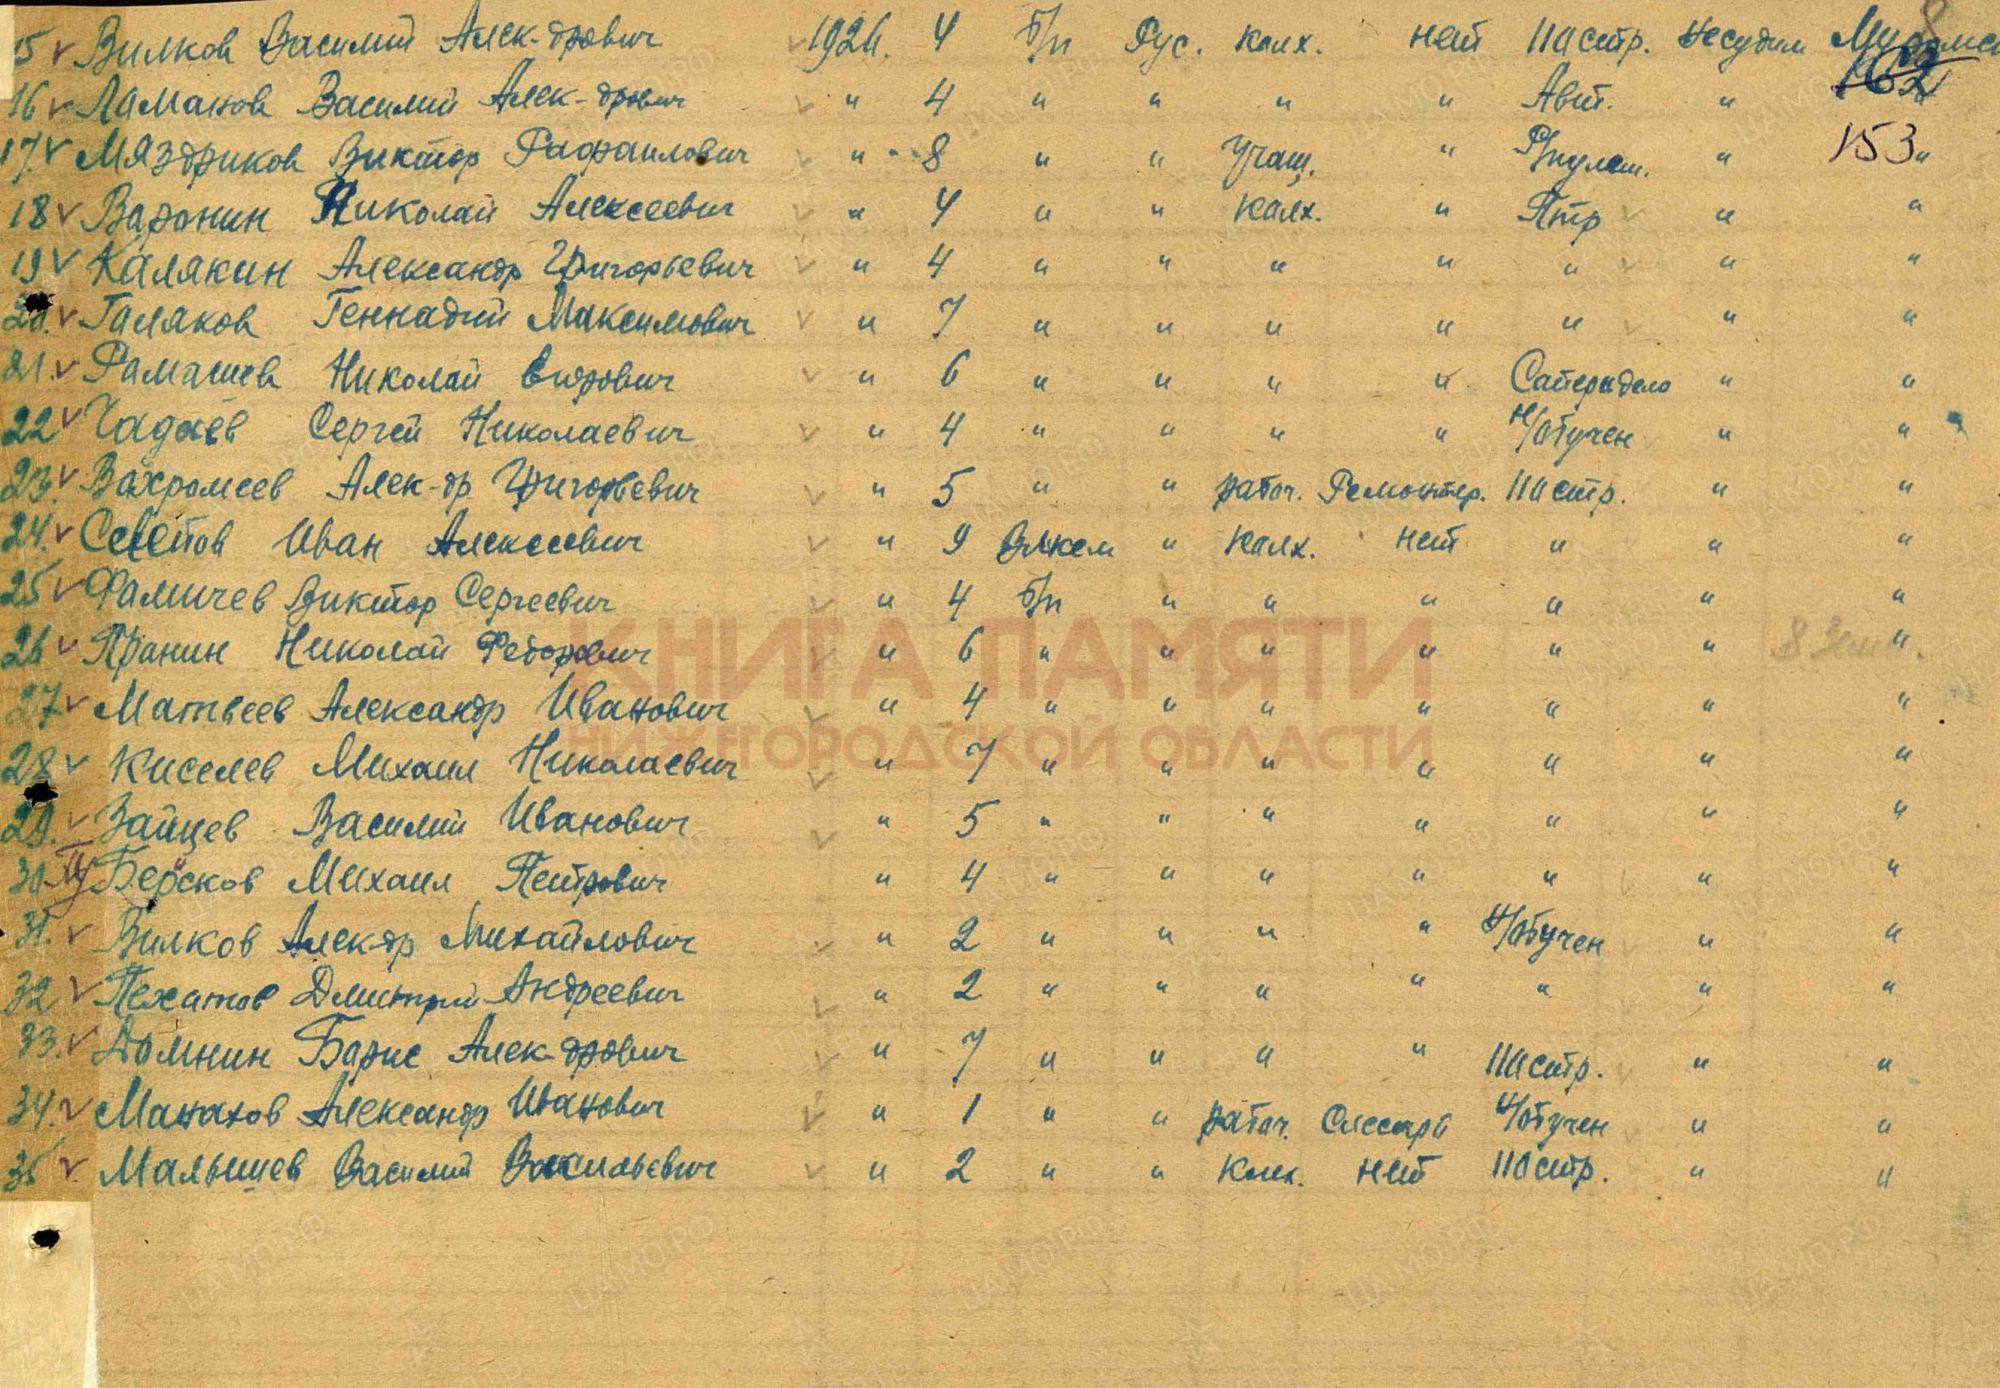 15 Вилков Василий Алек-дрович 1926. 4 б/п Рус. колх. нет ПАстр. несудим
16 Ламанов Василий Алек-дрович " 4 " " " " Авт. " 162
17. Мяздриков Виктор Рафаилович " 8 " " Учащ. " Р/пулем. " 153 "
18 Варонин Николай Алексеевич " 4 " " колх. " Птр " "
19 Калякин Александр Григорьевич " 4 " " " " " " "
20. Галяков Геннадий Максимович " 7 " " " " " " "
21. Рамашев Николай Егорович " 6 " " " " " "
22 Чадаев Сергей Николаевич " 4 " " " " Н/обучен " "
23. Вахромеев Алек-др Григорьевич " 5 " " рабоч. ПАстр. " "
24. Иван Алексеевич " 9 Влксм " колх. нет " " "
25 Фамичев Виктор Сергеевич " 4 б/п " " " " " "
26 Пранин Николай Федорович " 6 " " " " " " "
27 Матвеев Александр Иванович " 4 " " " " " " "
28 Киселев Михаил Николаевич " 7 " " " " " " "
29. Зайцев Василий Иванович " 5 " " " " " " "
30 Берсков Михаил Петрович " 4 " " " " " " "
31. Вилков Алек-др Михайлович " 2 " " " " Н/обучен " "
32 Пехатов Дмитрий Андреевич " 2 " " " " " " "
33. Домнин Барис Алек-дрович " 7 " " " " ПАстр. " "
34. Манахов Александр Иванович " 1 " " рабоч. Слесарь Н/обучен " "
35 Малышев Василий Васильевич " 2 " " колх. нет ПАстр. " "
КНИГА ПАМЯТИ
НИЖЕГОРОДСКОЙ ОБЛАСТИ
ЦАМО.РФ